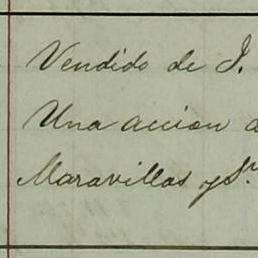 Vendido de J.
Una accion d
Maravillas y Sn.